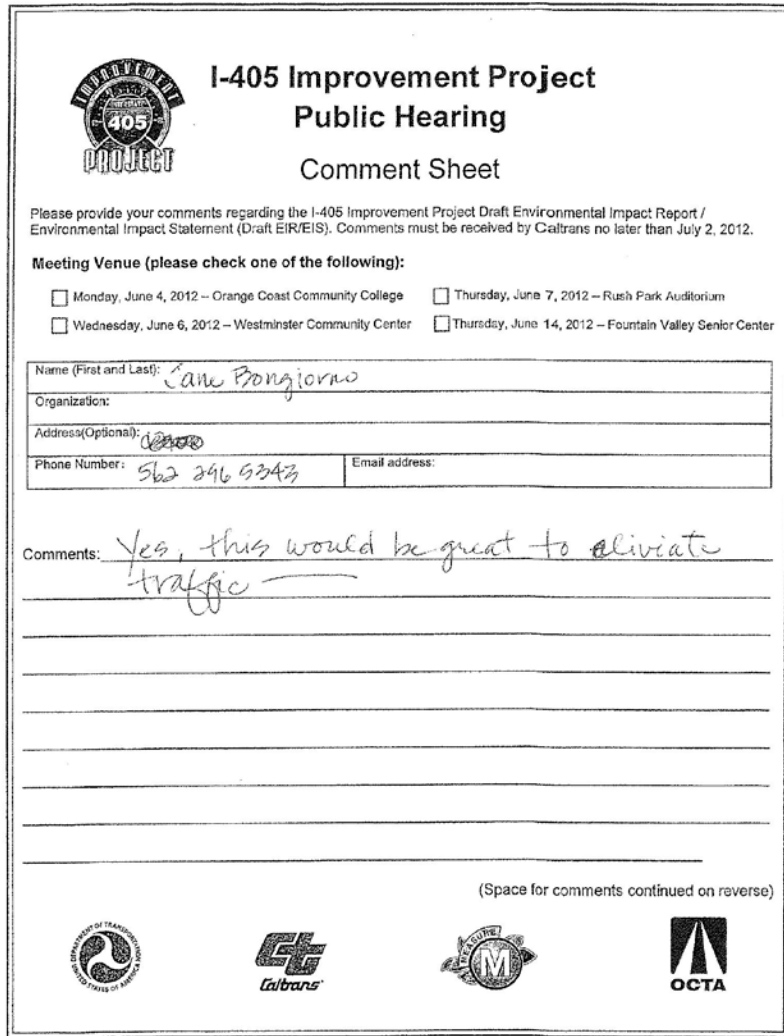 IMPROVEMENT
405
PROJECT
I-405 Improvement Project
Public Hearing
Comment Sheet
Please provide your comments regarding the I-405 Improvement Project Draft Environmental Impact Report /
Environmental Impact Statement (Draft EIR/EIS). Comments must be received by Caltrans no later than July 2, 2012.
Meeting Venue (please check one of the following):
Monday, June 4, 2012 – Orange Coast Community College
Thursday, June 7, 2012 – Rush Park Auditorium
Wednesday, June 6, 2012 – Westminster Community Center
Thursday, June 14, 2012 – Fountain Valley Senior Center
Name (First and Last): Jane Bongiorno
Organization:
Address(Optional):
Phone Number: 562 296 5343
Email address:
Comments: Yes, this would be great to aliviate
traffic —
(Space for comments continued on reverse)
DEPARTMENT OF TRANSPORTATION
UNITED STATES OF AMERICA
Caltrans
MEASURE
M
OCTA